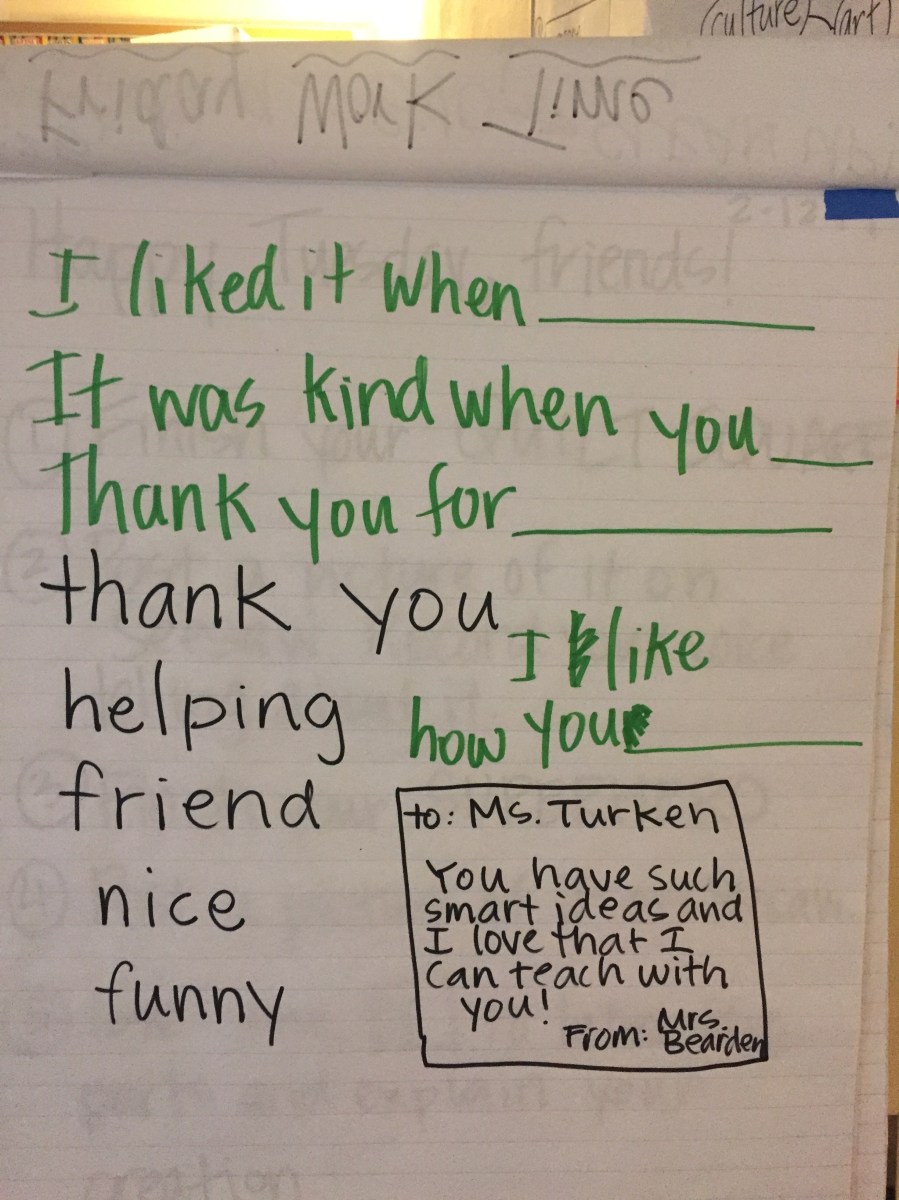 (culture) (art)
Friday Work Time
Happy Tuesday, friends!
I liked it when
It was kind when you
Thank you for
thank you
I like
helping
how you
friend
nice
funny
to: Ms. Turken
You have such
smart ideas and
I love that I
can teach with
you!
From: Mrs.
Bearden